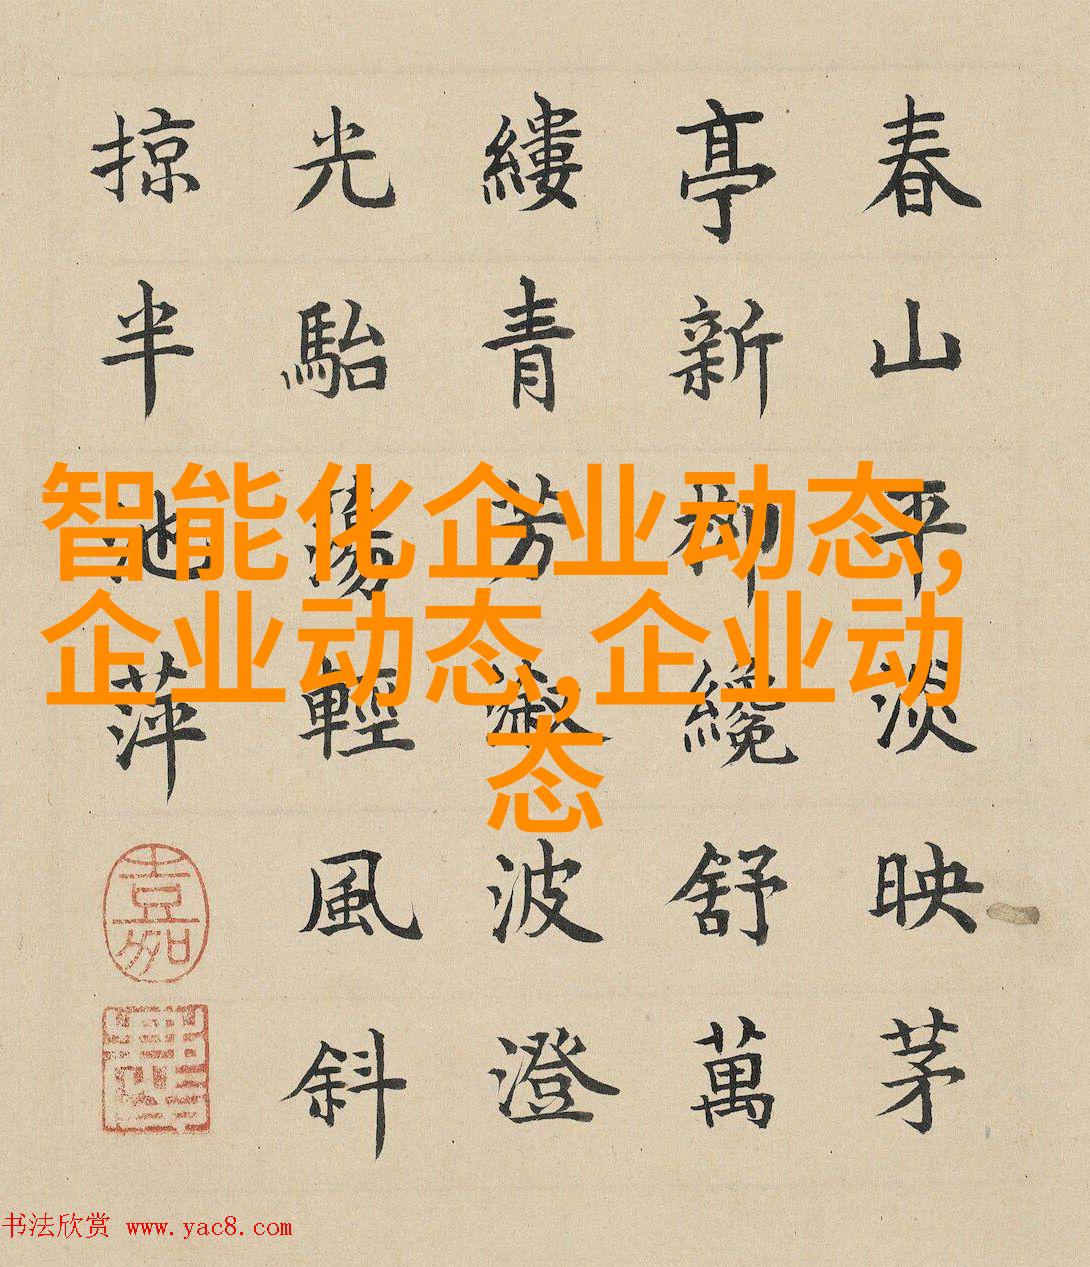 春山平淡映茅
亭新柳纔舒萬
縷青芳波澄
光駘蕩輕風斜
掠半池萍
嘉
智能化企业动态,
企业动态,企业动
态
书法欣赏 www.yac8.com